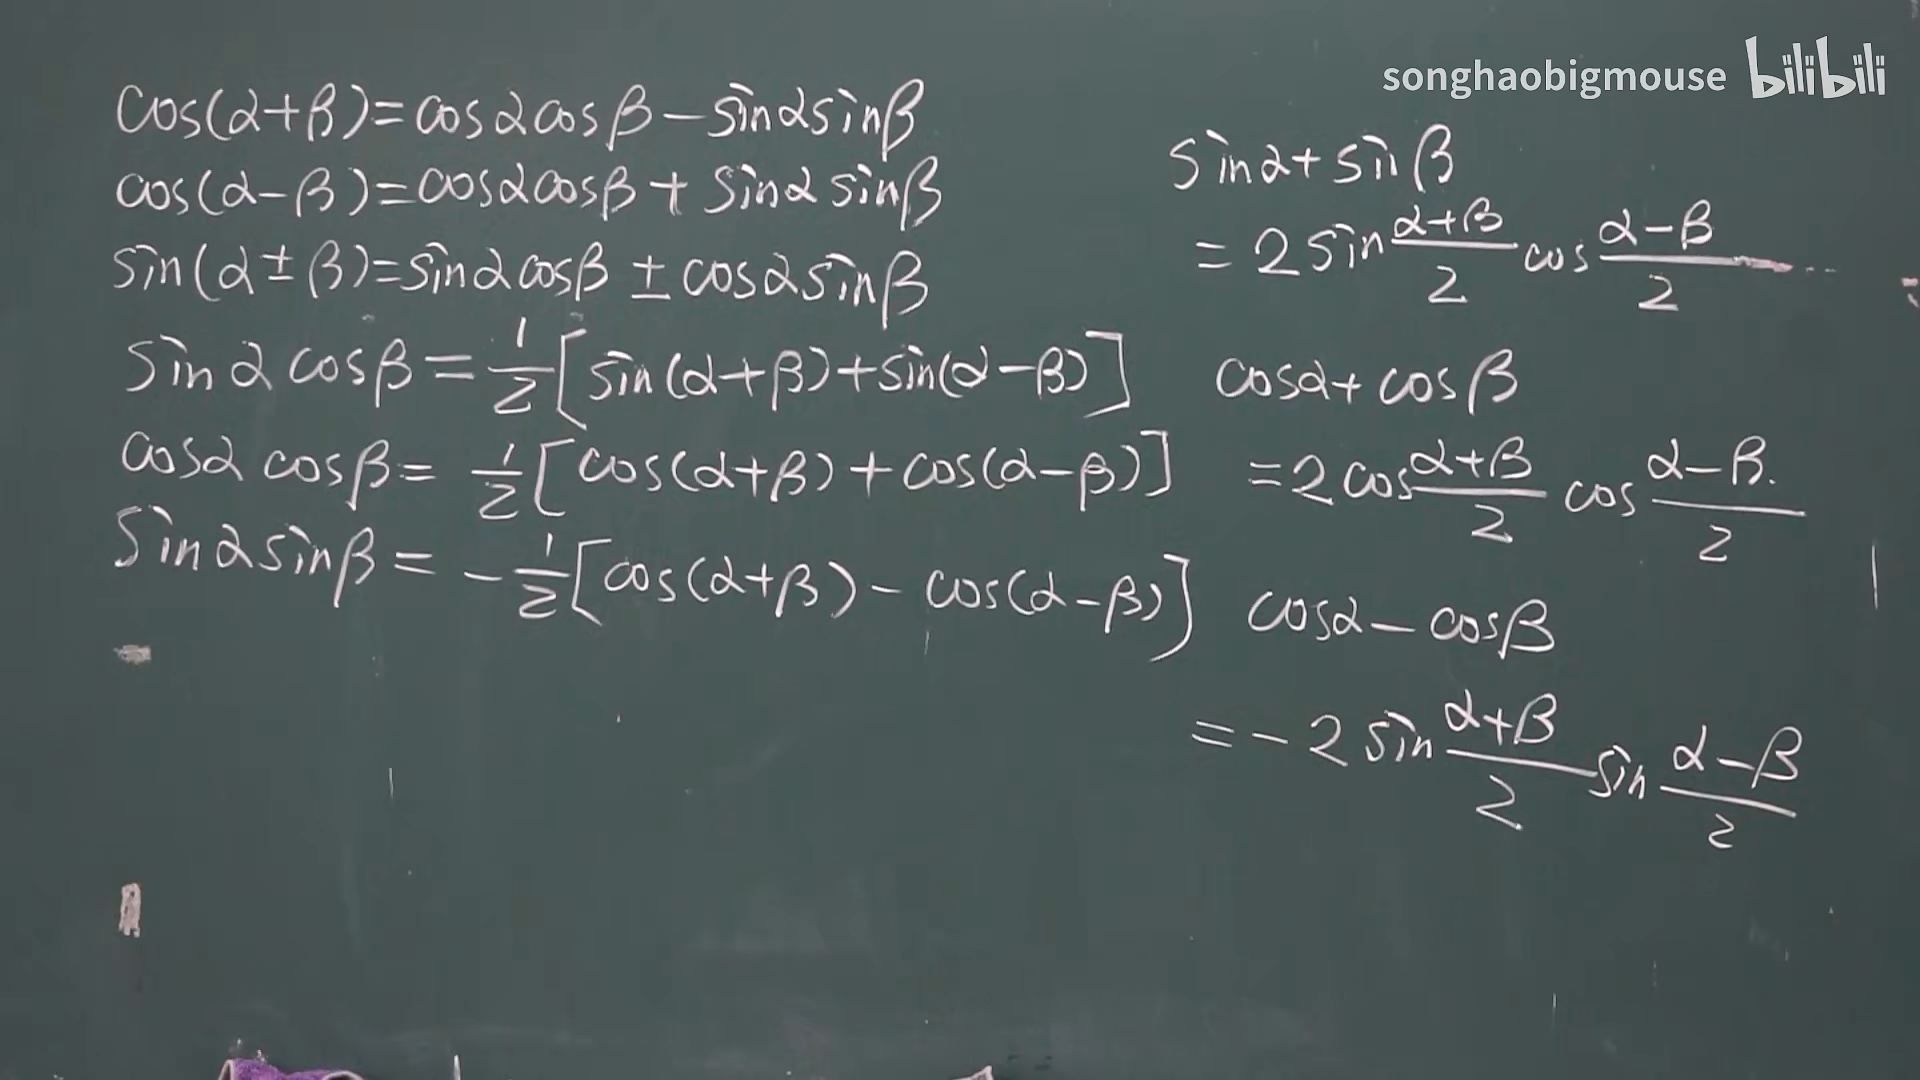 songhaobigmouse bilibili
cos(α+β)=cosαcosβ-sinαsinβ
cos(α-β)=cosαcosβ+sinαsinβ
sin(α±β)=sinαcosβ±cosαsinβ
sinαcosβ=1/2[sin(α+β)+sin(α-β)]
cosαcosβ=1/2[cos(α+β)+cos(α-β)]
sinαsinβ=-1/2[cos(α+β)-cos(α-β)]
sinα+sinβ
=2sin α+β/2 cos α-β/2
cosα+cosβ
=2cos α+β/2 cos α-β/2
cosα-cosβ
=-2sin α+β/2 sin α-β/2